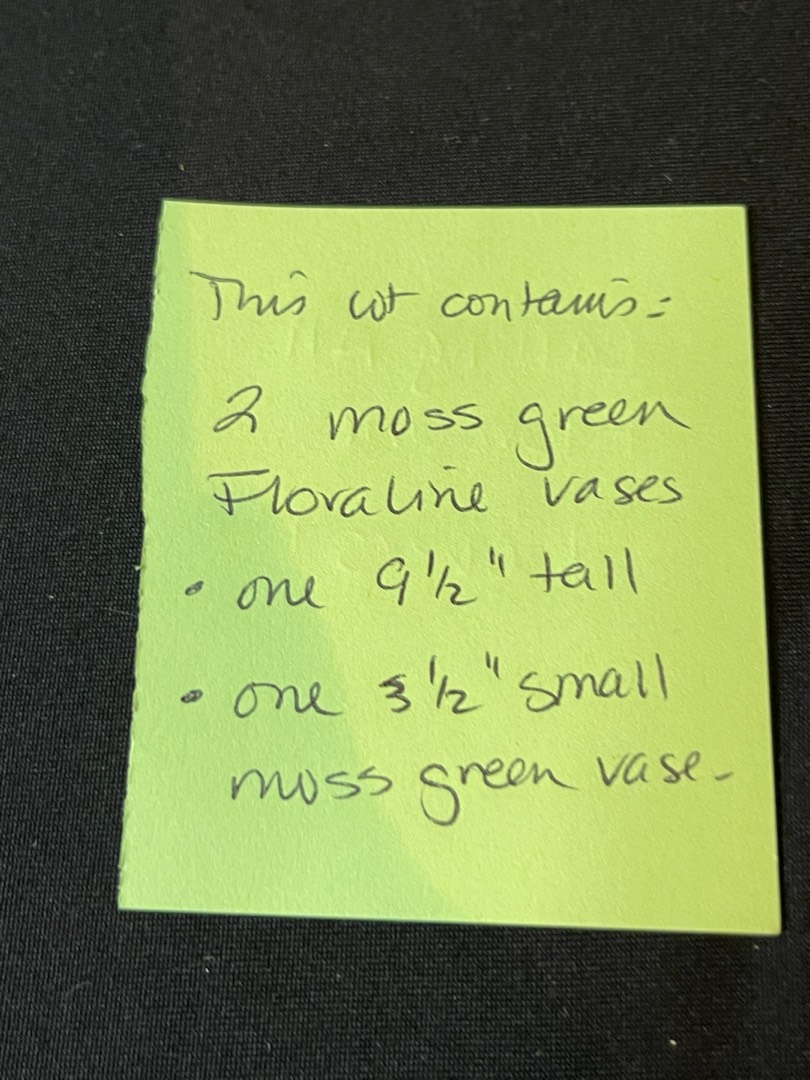 This lot contains:
2 moss green
Floraline vases
• one 9 1/2" tall
• one 3 1/2" small
moss green vase.